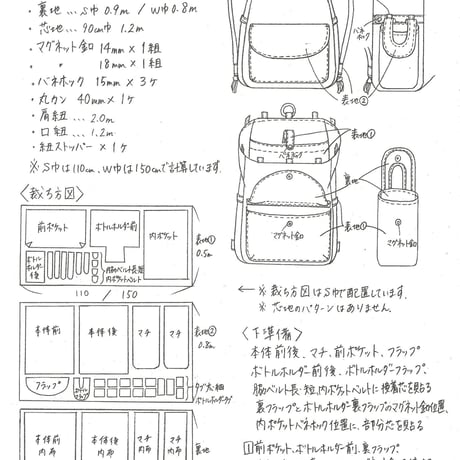 ・裏地 … S巾 0.9m / W巾 0.8m
・芯地 … 90cm巾 1.2m
・マグネット釦 14mm × 1組
・ 〃 18mm × 1組
・バネホック 15mm × 3ヶ
・丸カン 40mm × 1ヶ
・肩紐 … 2.0m
・口紐 … 1.2m
・紐ストッパー × 1ヶ
※S巾は110cm、W巾は150cmで計算しています。
〈裁ち方図〉
前ポケット
ボトルホルダー前
内ポケット
ボトルホルダー後
脇ベルト長・短
内ポケットベルト
表地①
0.5m
110 / 150
本体前
本体後
マチ
マチ
フラップ
表地②
0.8m
ボトルホルダータブ
本体前内布
本体後内布
マチ内布
マチ内布
裏地
バネホック
表地②
表地①
バネホック
裏地
マグネット釦
表地①
マグネット釦
← ※裁ち方図はS巾で配置しています。
※芯地のパターンはありません。
〈下準備〉
本体前後、マチ、前ポケット、フラップ
ボトルホルダー前後、ボトルホルダーフラップ、
脇ベルト長・短、内ポケットベルトに接着芯を貼る
裏フラップとボトルホルダー裏フラップのマグネット釦位置、
内ポケットバネホック位置に、部分芯を貼る
1 前ポケット、ボトルホルダー前、裏フラップ